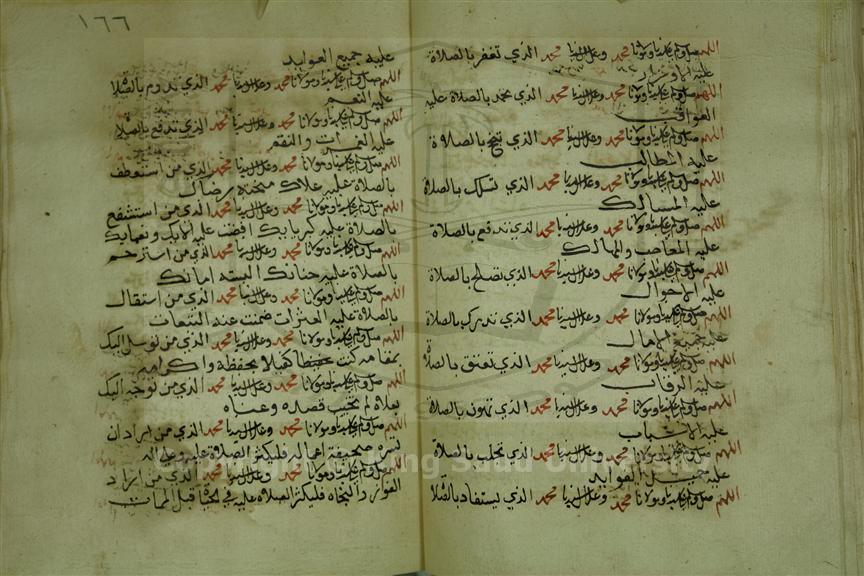 اللهم صل وسلم على سيدنا ومولانا محمد وعلى آل سيدنا محمد الذي تغفر بالصلاة
عليه الاوزار
اللهم صل وسلم على سيدنا ومولانا محمد وعلى آل سيدنا محمد الذي تحمد بالصلاة عليه
العواقب
اللهم صل وسلم على سيدنا ومولانا محمد وعلى آل سيدنا محمد الذي تنجح بالصلاة
عليه المطالب
اللهم صل وسلم على سيدنا ومولانا محمد وعلى آل سيدنا محمد الذي تسلك بالصلاة
عليه المسالك
اللهم صل وسلم على سيدنا ومولانا محمد وعلى آل سيدنا محمد الذي تدفع بالصلاة
عليه والمهالك
اللهم صل وسلم على سيدنا ومولانا محمد وعلى آل سيدنا محمد الذي تصلح بالصلاة
عليه الاحوال
اللهم صل وسلم على سيدنا ومولانا محمد وعلى آل سيدنا محمد الذي تدرك بالصلاة
عليه جميع الامال
اللهم صل وسلم على سيدنا ومولانا محمد وعلى آل سيدنا محمد الذي تعتق بالصلاة
عليه الرقاب
اللهم صل وسلم على سيدنا ومولانا محمد وعلى آل سيدنا محمد الذي تهون بالصلاة
عليه الاسباب
اللهم صل وسلم على سيدنا ومولانا محمد وعلى آل سيدنا محمد الذي تجلب بالصلاة
عليه جميل الفوايد
اللهم صل وسلم على سيدنا ومولانا محمد وعلى آل سيدنا محمد الذي يستفاد بالصلاة
١٦٦
عليه جميع العوايد
اللهم صل وسلم على سيدنا ومولانا محمد وعلى آل سيدنا محمد الذي تدوم بالصلاة
عليه النعم
اللهم صل وسلم على سيدنا ومولانا محمد وعلى آل سيدنا محمد الذي تدفع بالصلاة
عليه والنقم
اللهم صل وسلم على سيدنا ومولانا محمد وعلى آل سيدنا محمد الذي من استعطف
بالصلاة عليه علاك منحته رضاك
اللهم صل وسلم على سيدنا ومولانا محمد وعلى آل سيدنا محمد الذي من استشفع
بالصلاة عليه كبريايك افضت عليه الايك ونعمايك
اللهم صل وسلم على سيدنا ومولانا محمد وعلى آل سيدنا محمد الذي من استرحم
بالصلاة عليه حنانك البسته امانك
اللهم صل وسلم على سيدنا ومولانا محمد وعلى آل سيدنا محمد الذي من استقال
بالصلاة عليه العثرات ضمنت عنه التبعات
اللهم صل وسلم على سيدنا ومولانا محمد وعلى آل سيدنا محمد الذي من توسل اليك
بمقامه كنت كفيلا بحفظه واكرامه
اللهم صل وسلم على سيدنا ومولانا محمد وعلى آل سيدنا محمد الذي من توجه اليك
بعلاه لم تخيب قصده وعناه
اللهم صل وسلم على سيدنا ومولانا محمد وعلى آل سيدنا محمد الذي من اراد ان
تسره صحيفة اعماله فليكثر الصلاة عليه وعلى اله
اللهم صل وسلم على سيدنا ومولانا محمد وعلى آل سيدنا محمد الذي من اراد
الفوز والنجاه فليكثر الصلاة عليه في الحياة قبل الممات
Copyright © King Saud University